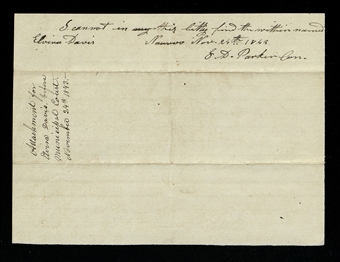 I cannot in my this City find the within named
Elvira Davis Nauvoo Nov. 24th 1842
E. D. Parker Con.
Attachment for
Davis before
Municipal Court
November 24th 1842